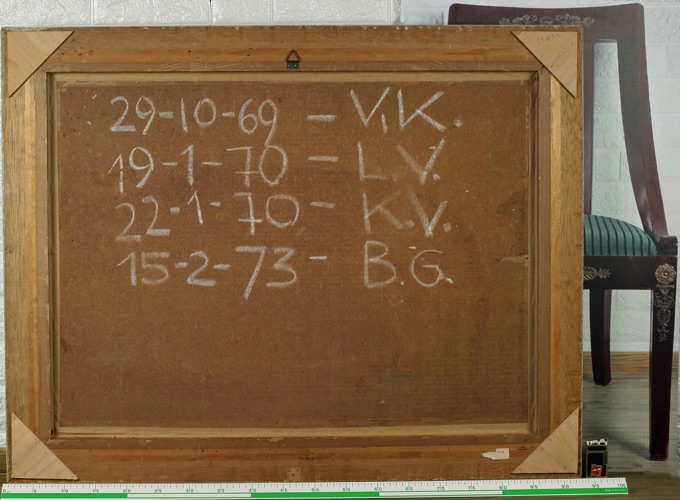 29-10-69 - V.K.
19-1-70 - L.V.
22-1-70 - K.V.
15-2-73 - B.G.